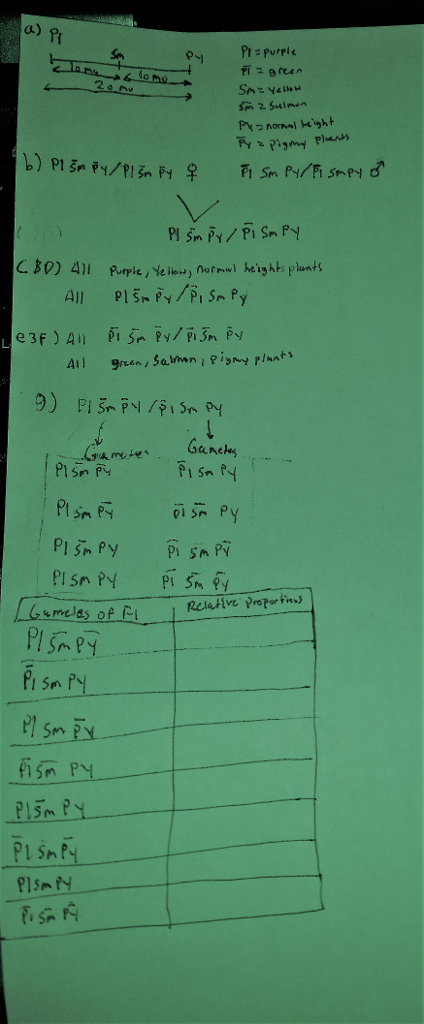 a) Pl Sm Py
10 mu 10 mu
20 mu
Pl = purple
P̄l = green
Sm = yellow
S̄m = Salmon
Py = normal height
P̄y = pigmy plants
b) Pl S̄m P̄y / Pl S̄m P̄y ♀ P̄l Sm Py / P̄l Sm Py ♂
Pl S̄m P̄y / P̄l Sm Py
C & D) All Purple, Yellow, normal heights plants
All Pl S̄m P̄y / P̄l Sm Py
e & f) All P̄l S̄m P̄y / P̄l S̄m P̄y
All green, Salmon, Pigmy plants
g) Pl S̄m P̄y / P̄l Sm Py
Gametes Gametes
Pl S̄m P̄y P̄l Sm Py
Pl Sm P̄y P̄l S̄m Py
Pl S̄m Py P̄l Sm P̄y
Pl Sm Py P̄l S̄m P̄y
Gametes of F1 Relative Proportions
Pl S̄m P̄y
P̄l Sm Py
Pl Sm P̄y
P̄l S̄m Py
Pl S̄m Py
P̄l Sm P̄y
Pl Sm Py
P̄l S̄m P̄y